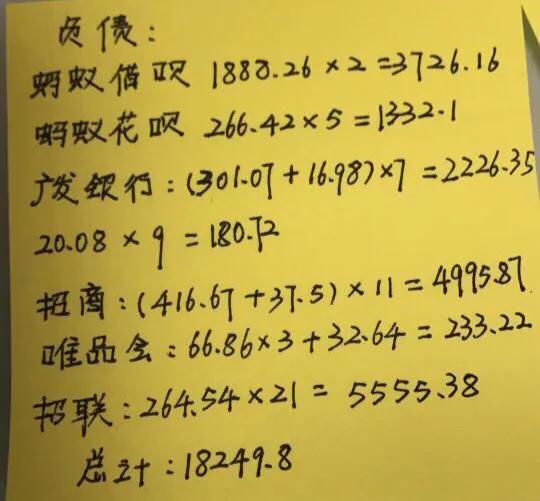 负债:
蚂蚁借呗 1888.26×2=3726.16
蚂蚁花呗 266.42×5=1332.1
广发银行:(301.07+16.98)×7=2226.35
20.08×9=180.72
招商:(416.67+37.5)×11=4995.87
唯品会:66.86×3+32.64=233.22
招联:264.54×21=5555.38
总计:18249.8